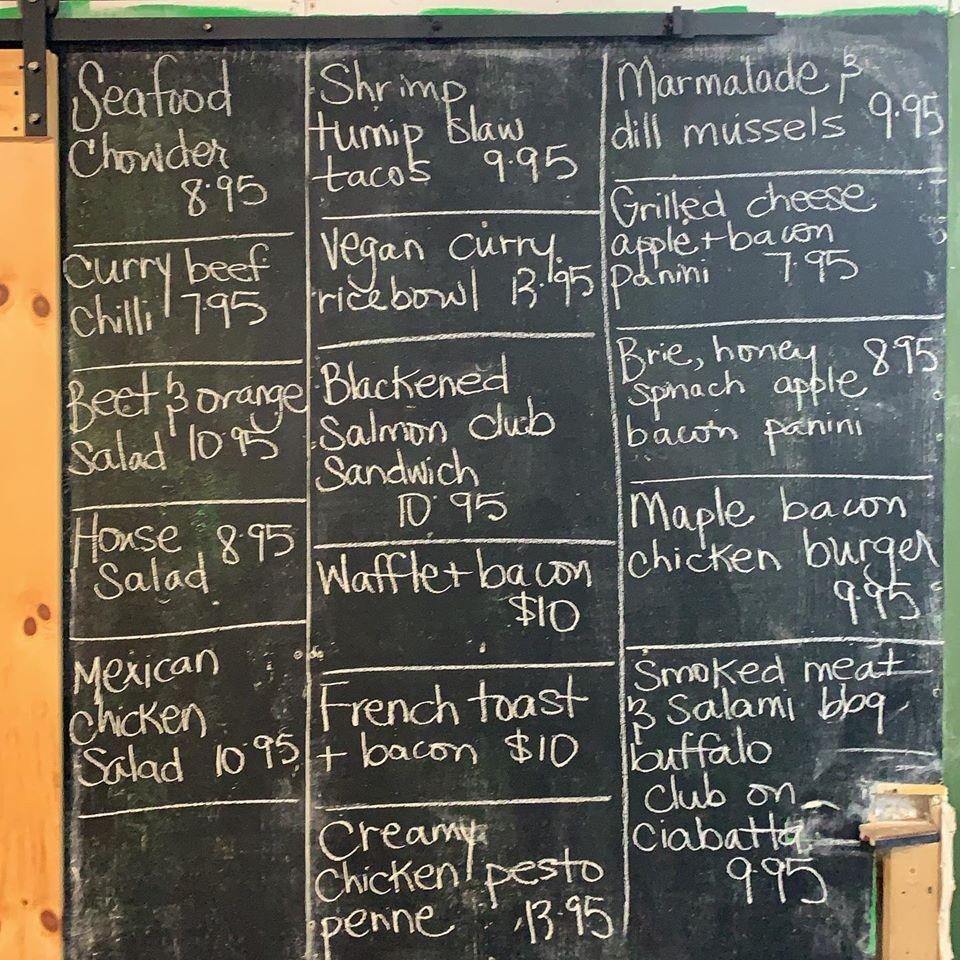 Seafood
Chowder
8.95
Curry beef
Chilli 7.95
Beet & orange
Salad 10.95
House 8.95
Salad
Mexican
Chicken
Salad 10.95
Shrimp
turnip slaw
tacos 9.95
Vegan curry
rice bowl 13.95
Blackened
Salmon club
Sandwich
10.95
Waffle + bacon
$10
French toast
+ bacon $10
Creamy
Chicken pesto
penne 13.95
Marmalade &
dill mussels 9.95
Grilled cheese
apple + bacon
panini 7.95
Brie, honey 8.95
spinach apple
bacon panini
Maple bacon
chicken burger
9.95
Smoked meat
& Salami bbq
buffalo
club on
Ciabatta
9.95